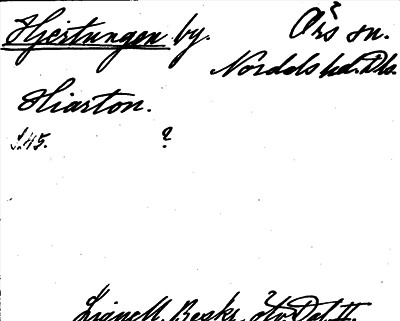 Hjertungen by. Örs sn.
Nordals hd. Dls.
Hiarton.
S.45. ?
Lignell, Beskr. öfv. Dal II.